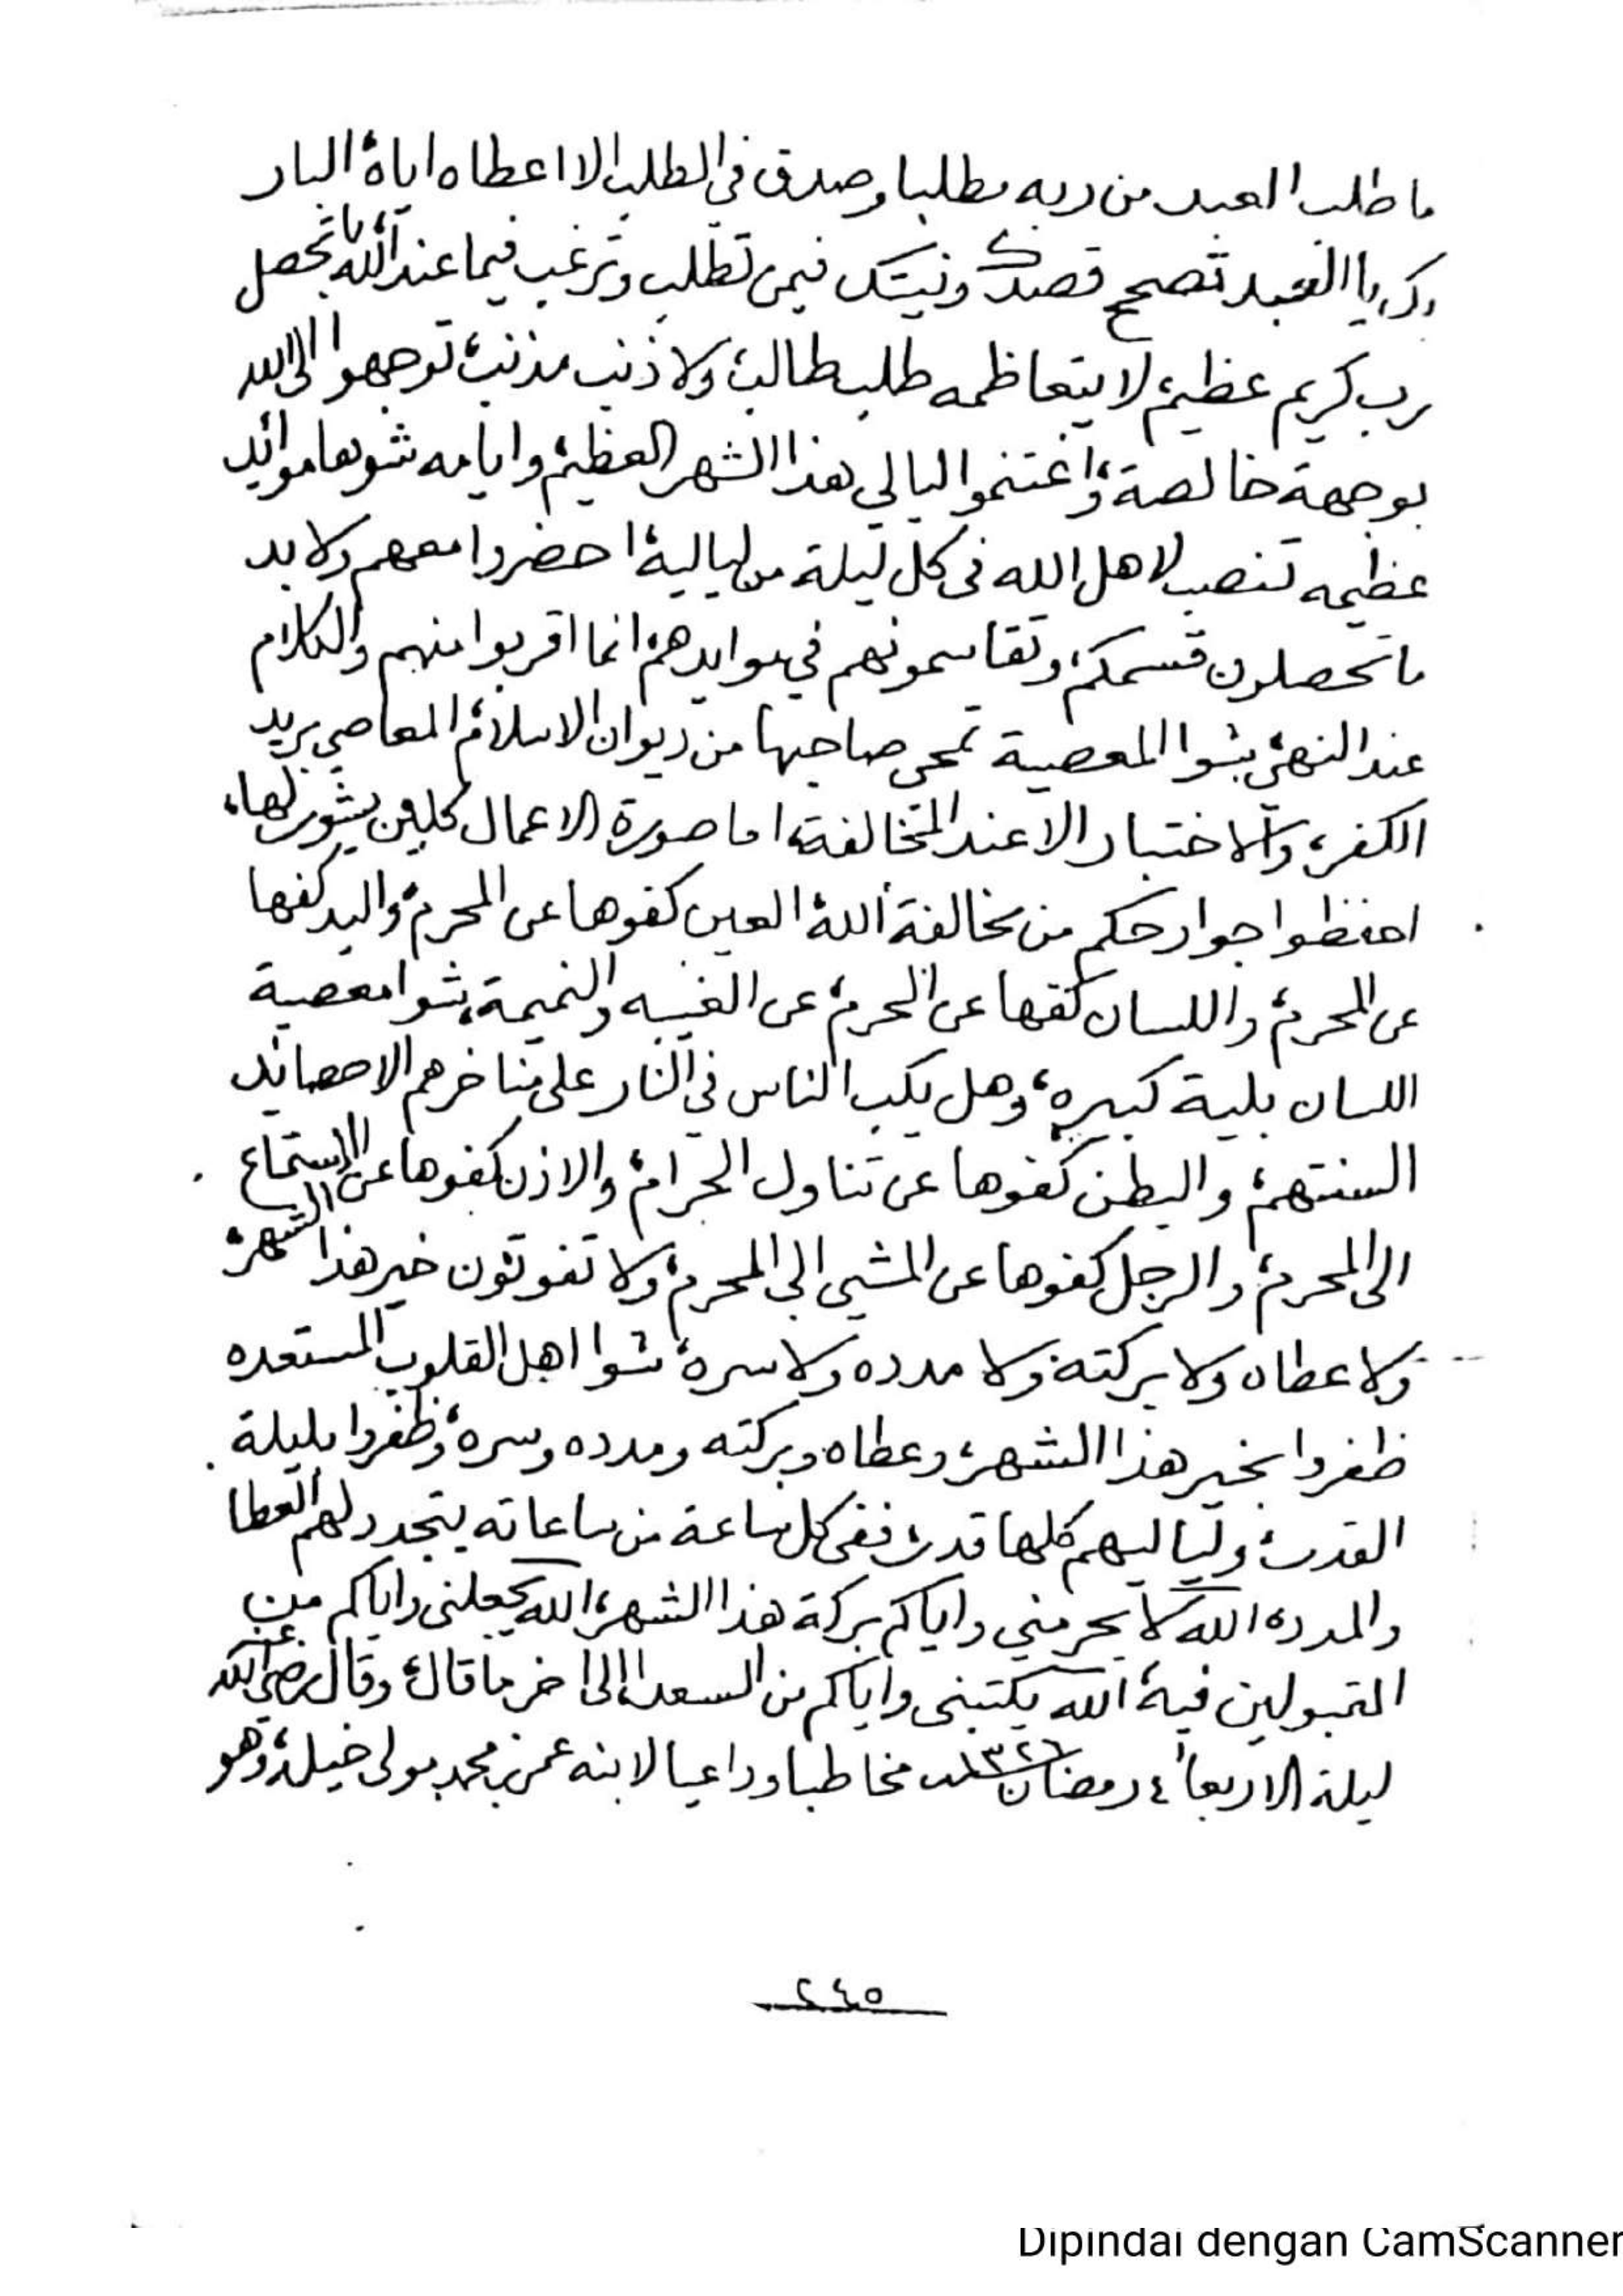 ما طلب العبد من ربه مطلبا وصدق في الطلب الا اعطاه اياه، البار
كك يا العبد تصحح قصدك ونيتك فيمن تطلب وترغب فيما عند الله، باتحصل
رب كريم عظيم، لا يتعاظمه طلب طالب، ولا ذنب مذنب، توجهوا الى الله
بوجهة خالصة، واغتنموا ليالي هذا الشهر العظيم، وايامه شوها موائد
عظيمه تنصب لاهل الله في كل ليلة من لياليه، احضروا معهم ولا بد
ما تحصلون قسمكم، وتقاسمونهم في موايدهم، انما اقربوا منهم والكلام
عند النهي، شوا المعصية تمحي صاحبها من ديوان الاسلام، المعاصي بريد
الكفر، والاختبار الا عند المخالفة، اما صورة الاعمال كلين يشور لها،
احفظوا جوارحكم من مخالفة الله، العين كفوها عن المحرم، واليد كفها
عن المحرم، واللسان كفها عن المحرم، عن الغيبه والنميمة، شوا معصية
اللسان بلية كبيره، وهل يكب الناس في النار على مناخرهم الا حصائد
السنتهم، والبطن كفوها عن تناول الحرام، والاذن كفوها عن الاستماع
الى المحرم، والرجل كفوها عن المشي الى المحرم، ولا تفوتون خير هذا الشهر،
ولا عطاه ولا بركته ولا مدده ولا سره، شوا اهل القلوب المستعده
ظفروا بخير هذا الشهر، وعطاه وبركته ومدده وسره، وظفروا بليلة
القدر، ولياليهم كلها قدر، ففي كل ساعة من ساعاته يتجدد لهم العطا
والمدد، الله لا يحرمني واياكم بركة هذا الشهر، الله يجعلني واياكم من
المقبولين فيه، الله يكتبني واياكم من السعدا الى اخر ما قال، وقال رضي الله عنه
ليلة الاربعاء ٤ رمضان ١٣٢٦ مخاطبا وداعيا لابنه عمر بن محمد مولى خيلة، وهو
٢٤٥
Dipindai dengan CamScanner